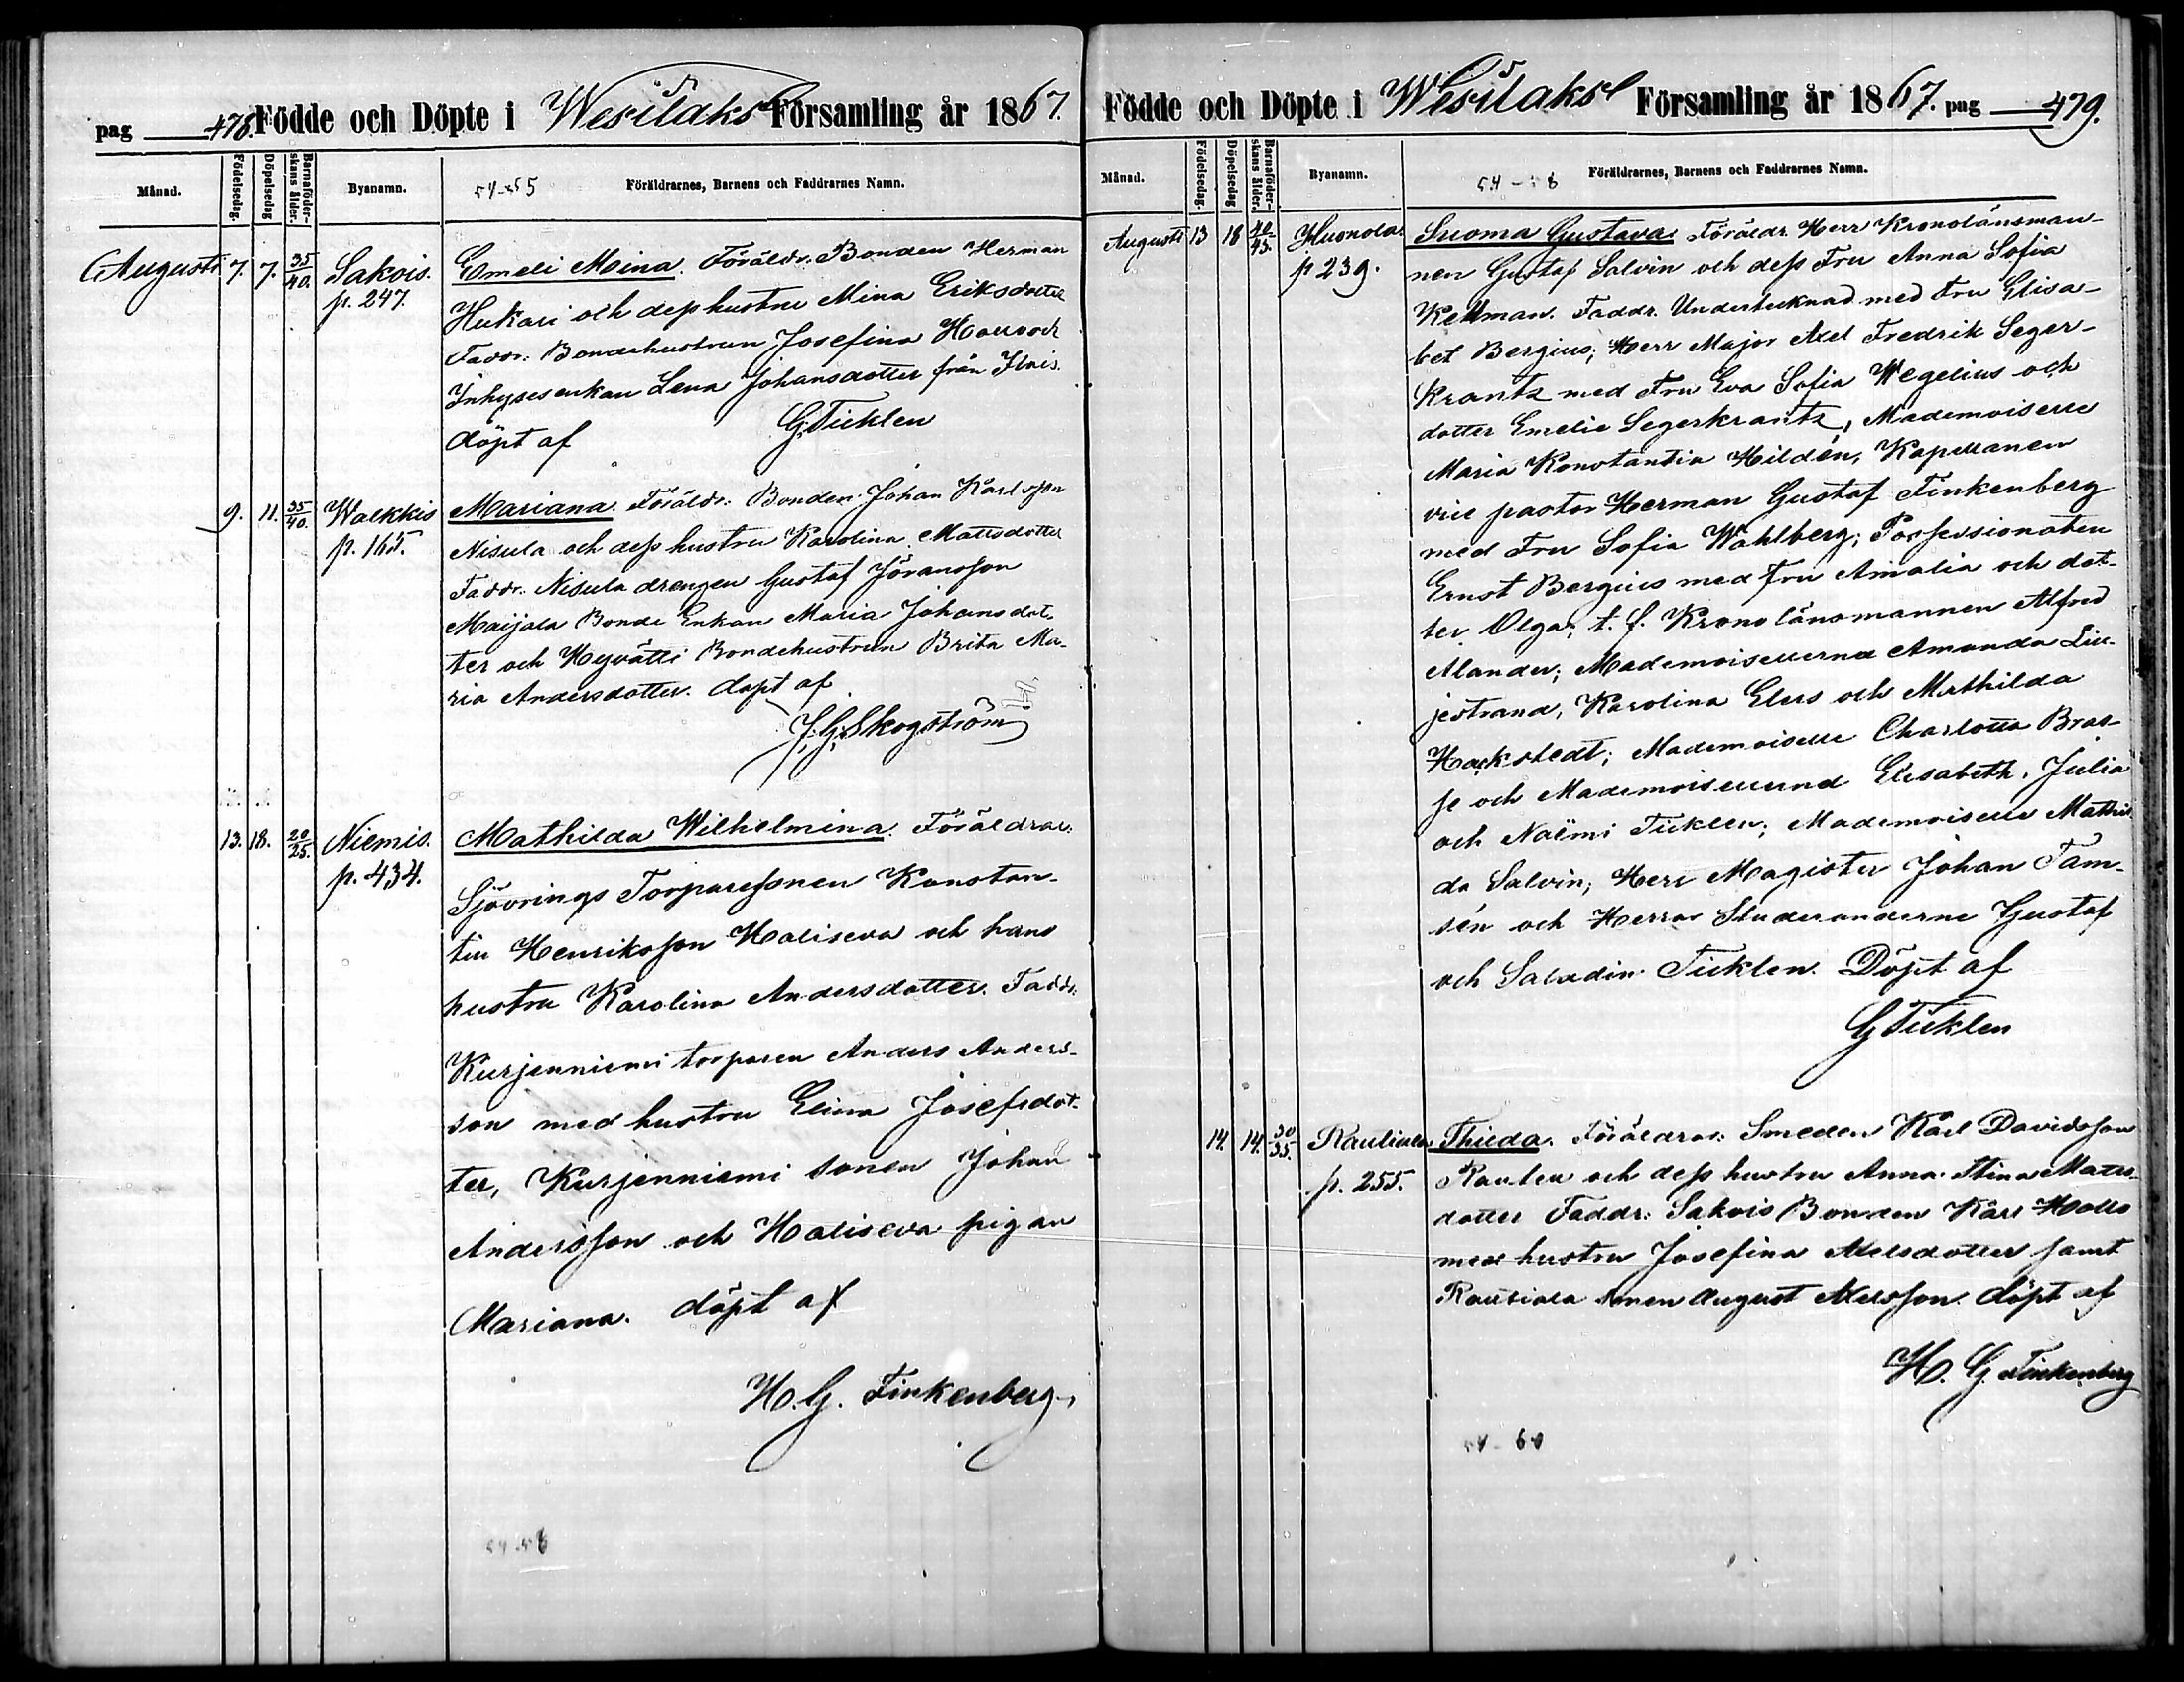 pag 478. Födde och Döpte i Wesilaks Församling år 1867.
Månad. Födelsedag. Döpelsedag Barnaföderskans ålder. Byanamn. 54-55 Föräldrarnes, Barnens och Faddrarnes Namn.
Augusti 7. 7. 35/40. Sakois. Emeli Mina. Föräldr. Bonden Herman
p. 247. Hukari och dess hustru Mina Eriksdotter
Faddr. Bondehustrun Josefina och
Inhyses enkan Lena Johansdotter från
döpt af G. Ticklen
9. 11. 35/40. Walkkis Mariana. Föräldr: Bonden Johan Karlsson
p. 165. Nisula och dess hustru Karolina Mattsdotter
Faddr. Nisula drengen Gustaf Jöransson
Maijala Bonde Enkan Maria Johansdot-
ter och Hyvätti Bondehustrun Brita Ma-
ria Andersdotter. döpt af
J. G. Skogström
13. 18. 20/25. Niemis. Mathilda Wilhelmina. Föräldrar:
p. 434. Sjövrings Torparesonen Konstan-
tin Henriksson Haliseva och hans
hustru Karolina Andersdotter. Faddr:
Kurjenniemi torparen Anders Anders-
son med hustru Elina Josefsdot-
ter, Kurjenniemi sonen Johan
Andersson och Haliseva pigan
Mariana. döpt af
H. G. Finkenberg
54-56
Födde och Döpte i Wesilaks Församling år 1867. pag 479.
Månad. Födelsedag. Döpelsedag Barnaföderskans ålder. Byanamn. 54-58 Föräldrarnes, Barnens och Faddrarnes Namn.
Augusti 13 18 40/45. Huonola Suoma Gustava. Föräldr. Herr Kronolänsman-
p 239. nen Gustaf Salvin och dess Fru Anna Sofia
Kellman. Faddr. Undertecknad med Fru Elisa-
bet Bergius; Herr Major Axel Fredrik Seger-
krantz med Fru Eva Sofia Wegelius och
dotter Emelie Segerkrantz, Mademoiselle
Maria Konstantia Hildén, Kapellanen
vice pastor Herman Gustaf Finkenberg
med Fru Sofia Wahlberg; Possessionaten
Ernst Bergius med fru Amalia och dot-
ter Olga; t. f. Kronolänsmannen Alfred
Alander; Mademoisellerna Amanda Lil-
jestrand, Karolina Elers och Mathilda
Hackstedt; Mademoiselle Charlotta Bras-
se och Mademoisellerna Elisabeth, Julia
och Naëmi Ticklen; Mademoiselle Mathil-
da Salvin, Herr Magister Johan Tam-
sén och Herrar Studeranderne Gustaf
och Saladin Ticklen. Döpt af
G Ticklen
14. 14. 30/35. Rautiala Thilda. Föräldrar: Smeden Karl Davidsson
p. 255. Rauten och dess hustru Anna Stina Matts-
dotter Faddr: Sakois Bonden Karl Hollo
med hustru Josefina Axelsdotter samt
Rautiala sonen August Axelsson. döpt af
H. G. Finkenberg
54-60